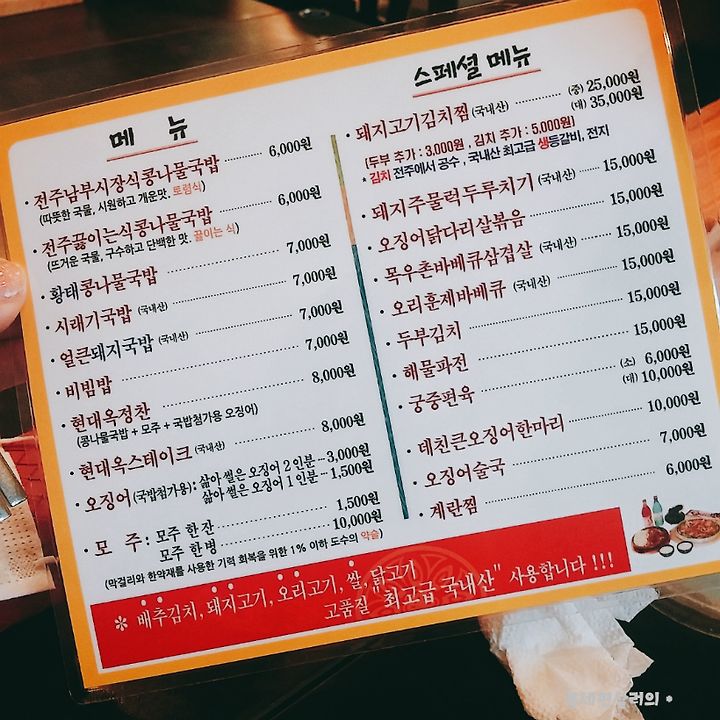 메 뉴
· 전주남부시장식콩나물국밥 ········ 6,000원
(따뜻한 국물, 시원하고 개운맛, 토렴식)
· 전주끓이는식콩나물국밥 ········ 6,000원
(뜨거운 국물, 구수하고 단백한 맛, 끓이는 식)
· 황태콩나물국밥 ········ 7,000원
· 시래기국밥 (국내산) ········ 7,000원
· 얼큰돼지국밥 (국내산) ········ 7,000원
· 비빔밥 ········ 7,000원
· 현대옥정찬 ········ 8,000원
(콩나물국밥 + 모주 + 국밥첨가용 오징어)
· 현대옥스테이크 (국내산) ········ 8,000원
· 오징어(국밥첨가용) : 삶아 썰은 오징어 2 인분 ··· 3,000원
삶아 썰은 오징어 1 인분 ··· 1,500원
· 모 주 : 모주 한 잔 ········ 1,500원
모주 한 병 ········ 10,000원
(막걸리와 한약재를 사용한 기력 회복을 위한 1% 이하 도수의 약술)
스페셜 메뉴
· 돼지고기김치찜 (국내산) ········ (중) 25,000원
(대) 35,000원
(두부 추가 : 3,000원 , 김치 추가 : 5,000원)
* 김치 전주에서 공수 , 국내산 최고급 생등갈비, 전지
· 돼지주물럭두루치기 (국내산) ········ 15,000원
· 오징어닭다리살볶음 ········ 15,000원
· 목우촌바베큐삼겹살 (국내산) ········ 15,000원
· 오리훈제바베큐 (국내산) ········ 15,000원
· 두부김치 ········ 15,000원
· 해물파전 ········ 15,000원
· 궁중편육 ········ (소) 6,000원
(대) 10,000원
· 데친큰오징어한마리 ········ 10,000원
· 오징어술국 ········ 7,000원
· 계란찜 ········ 6,000원
* 배추김치, 돼지고기, 오리고기, 쌀, 닭고기
고품질 "최고급 국내산" 사용합니다 !!!